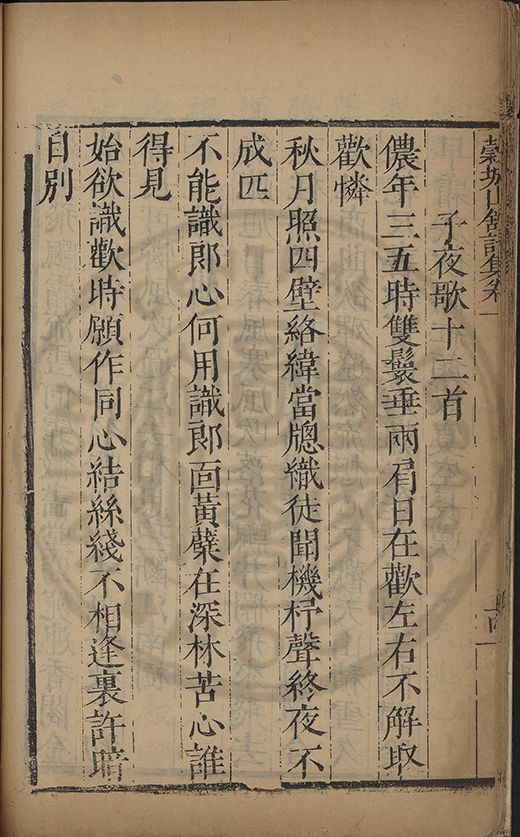 穀城山館詩集卷一
十四
子夜歌十二首
儂年三五時雙鬟垂兩肩日在歡左右不解取
歡憐
秋月照四壁絡緯當牕織徒聞機杼聲終夜不
成匹
不能識郎心何用識郎面黃蘗在深林苦心誰
得見
始欲識歡時願作同心結絲綫不相逢裏許暗
自別